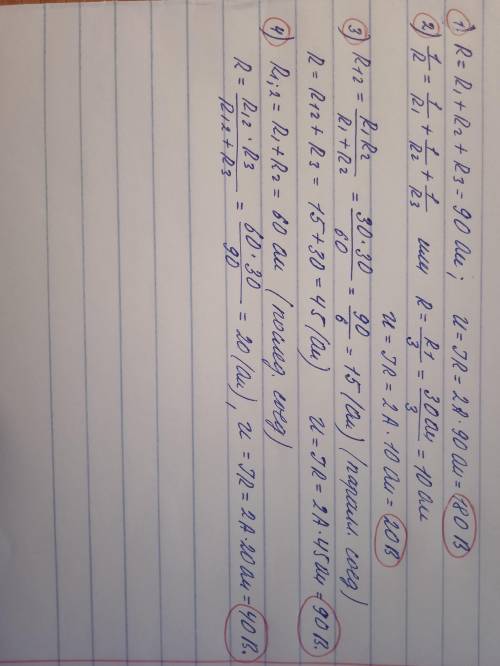 1) R = R1 + R2 + R3 = 90 Ом; U = IR = 2А · 90 Ом = 180 В
2) 1/R = 1/R1 + 1/R2 + 1/R3 или R = R1/3 = 30 Ом/3 = 10 Ом
U = IR = 2А · 10 Ом = 20 В
3) R12 = R1R2/(R1 + R2) = 30 · 30/60 = 90/6 = 15 (Ом) (паралл. соед)
R = R12 + R3 = 15 + 30 = 45 (Ом) U = IR = 2А · 45 Ом = 90 В.
4) R1,2 = R1 + R2 = 60 Ом (послед. соед)
R = R12 · R3/(R12 + R3) = 60 · 30/90 = 20 (Ом), U = IR = 2А · 20 Ом = 40 В.